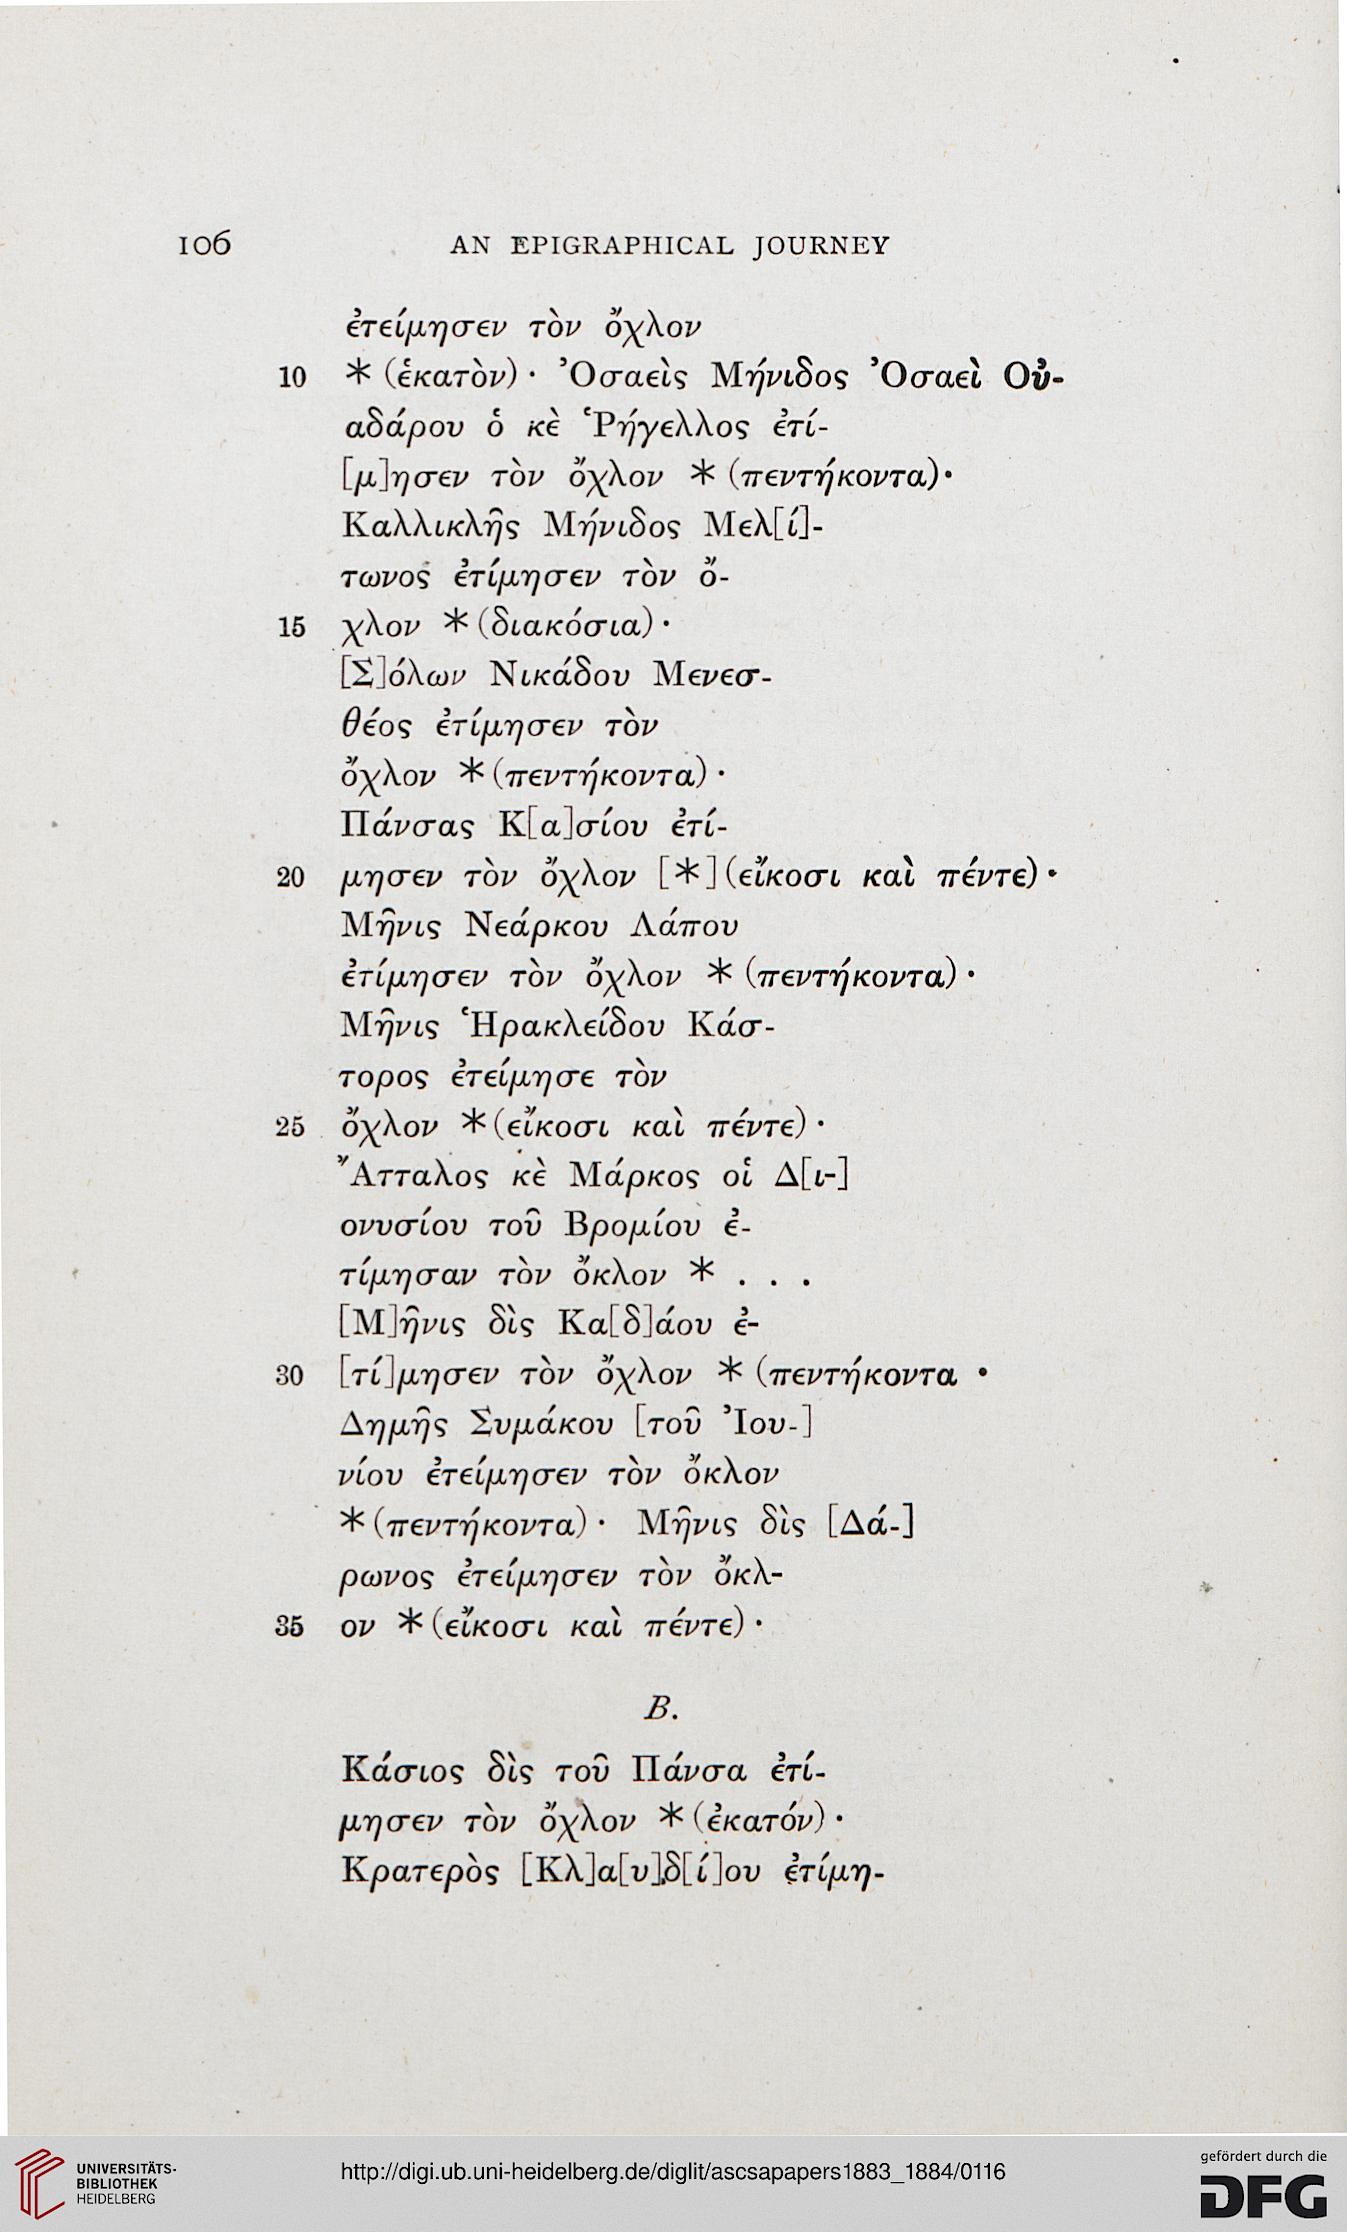 106 AN EPIGRAPHICAL JOURNEY
ἐτείμησεν τὸν ὄχλον
10 * (ἑκατὸν) · Ὀσαεὶς Μήνιδος Ὀσαεὶ Οὐ-
αδάρου ὁ κὲ Ῥήγελλος ἐτί-
[μ]ησεν τὸν ὄχλον * (πεντήκοντα) ·
Καλλικλῆς Μήνιδος Μελ[ί]-
τωνος ἐτίμησεν τὸν ὄ-
15 χλον * (διακόσια) ·
[Σ]όλων Νικάδου Μενεσ-
θέος ἐτίμησεν τὸν
ὄχλον * (πεντήκοντα) ·
Πάνσας Κ[α]σίου ἐτί-
20 μησεν τὸν ὄχλον [*] (εἴκοσι καὶ πέντε) ·
Μῆνις Νεάρκου Λάπου
ἐτίμησεν τὸν ὄχλον * (πεντήκοντα) ·
Μῆνις Ἡρακλείδου Κάσ-
τορος ἐτείμησε τὸν
25 ὄχλον * (εἴκοσι καὶ πέντε) ·
Ἄτταλος κὲ Μάρκος οἱ Δ[ι-]
ονυσίου τοῦ Βρομίου ἐ-
τίμησαν τὸν ὄκλον * . . .
[Μ]ῆνις δὶς Κα[δ]άου ἐ-
30 [τί]μησεν τὸν ὄχλον * (πεντήκοντα ·
Δημῆς Συμάκου [τοῦ Ἰου-]
νίου ἐτείμησεν τὸν ὄκλον
* (πεντήκοντα) · Μῆνις δὶς [Δά-]
ρωνος ἐτείμησεν τὸν ὄκλ-
35 ον * (εἴκοσι καὶ πέντε) ·
B.
Κάσιος δὶς τοῦ Πάνσα ἐτί-
μησεν τὸν ὄχλον * (ἐκατόν) ·
Κρατερὸς [Κλ]α[υ]δ[ί]ου ἐτίμη-
UNIVERSITÄTS-
BIBLIOTHEK
HEIDELBERG
http://digi.ub.uni-heidelberg.de/diglit/ascsapapers1883_1884/0116
gefördert durch die
DFG